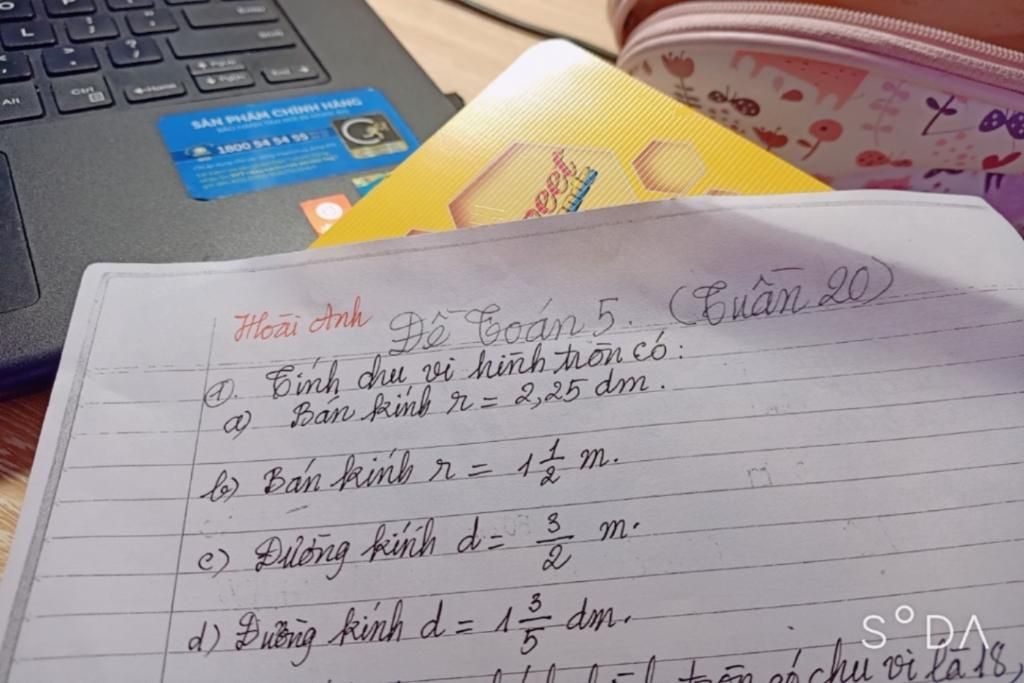 SẢN PHẨM CHÍNH HÃNG
1800 54 54 55
Hoài Anh
Đề Toán 5. (Tuần 20)
①. Tính chu vi hình tròn có:
a) Bán kính r = 2,25 dm.
b) Bán kính r = 1 1/2 m.
c) Đường kính d = 3/2 m.
d) Đường kính d = 1 3/5 dm.
hình tròn có chu vi là 18,
SODA